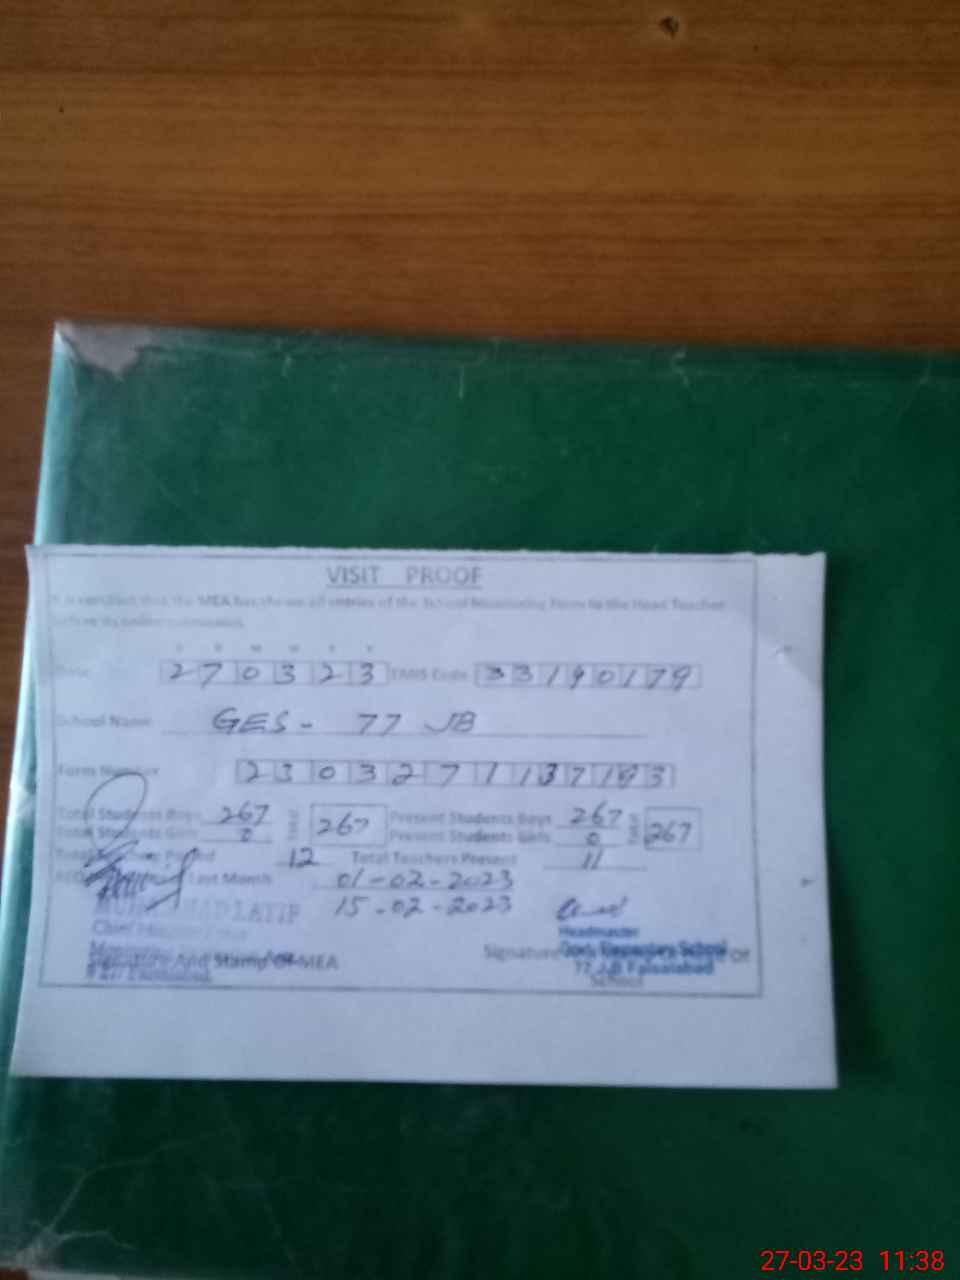 VISIT PROOF
It is certified that the MEA has shown all entries of the School Monitoring Form to the Head Teacher
before its online submission.
D D M M Y Y
Date 270323 EMIS Code 33190179
School Name GES - 77 JB
Form Number
Total Students Boys 267 Total 267 Present Students Boys 267 Total 267
Total Students Girls 0 Present Students Girls 0
Total 12 Total Teachers Present 11
Last Month 01-02-2023
15-02-2023
LATIF
Headmaster
Govt. Elementary School
77 J.B Faisalabad
Signature And Stamp Of MEA
Signature Of
School
27-03-23 11:38